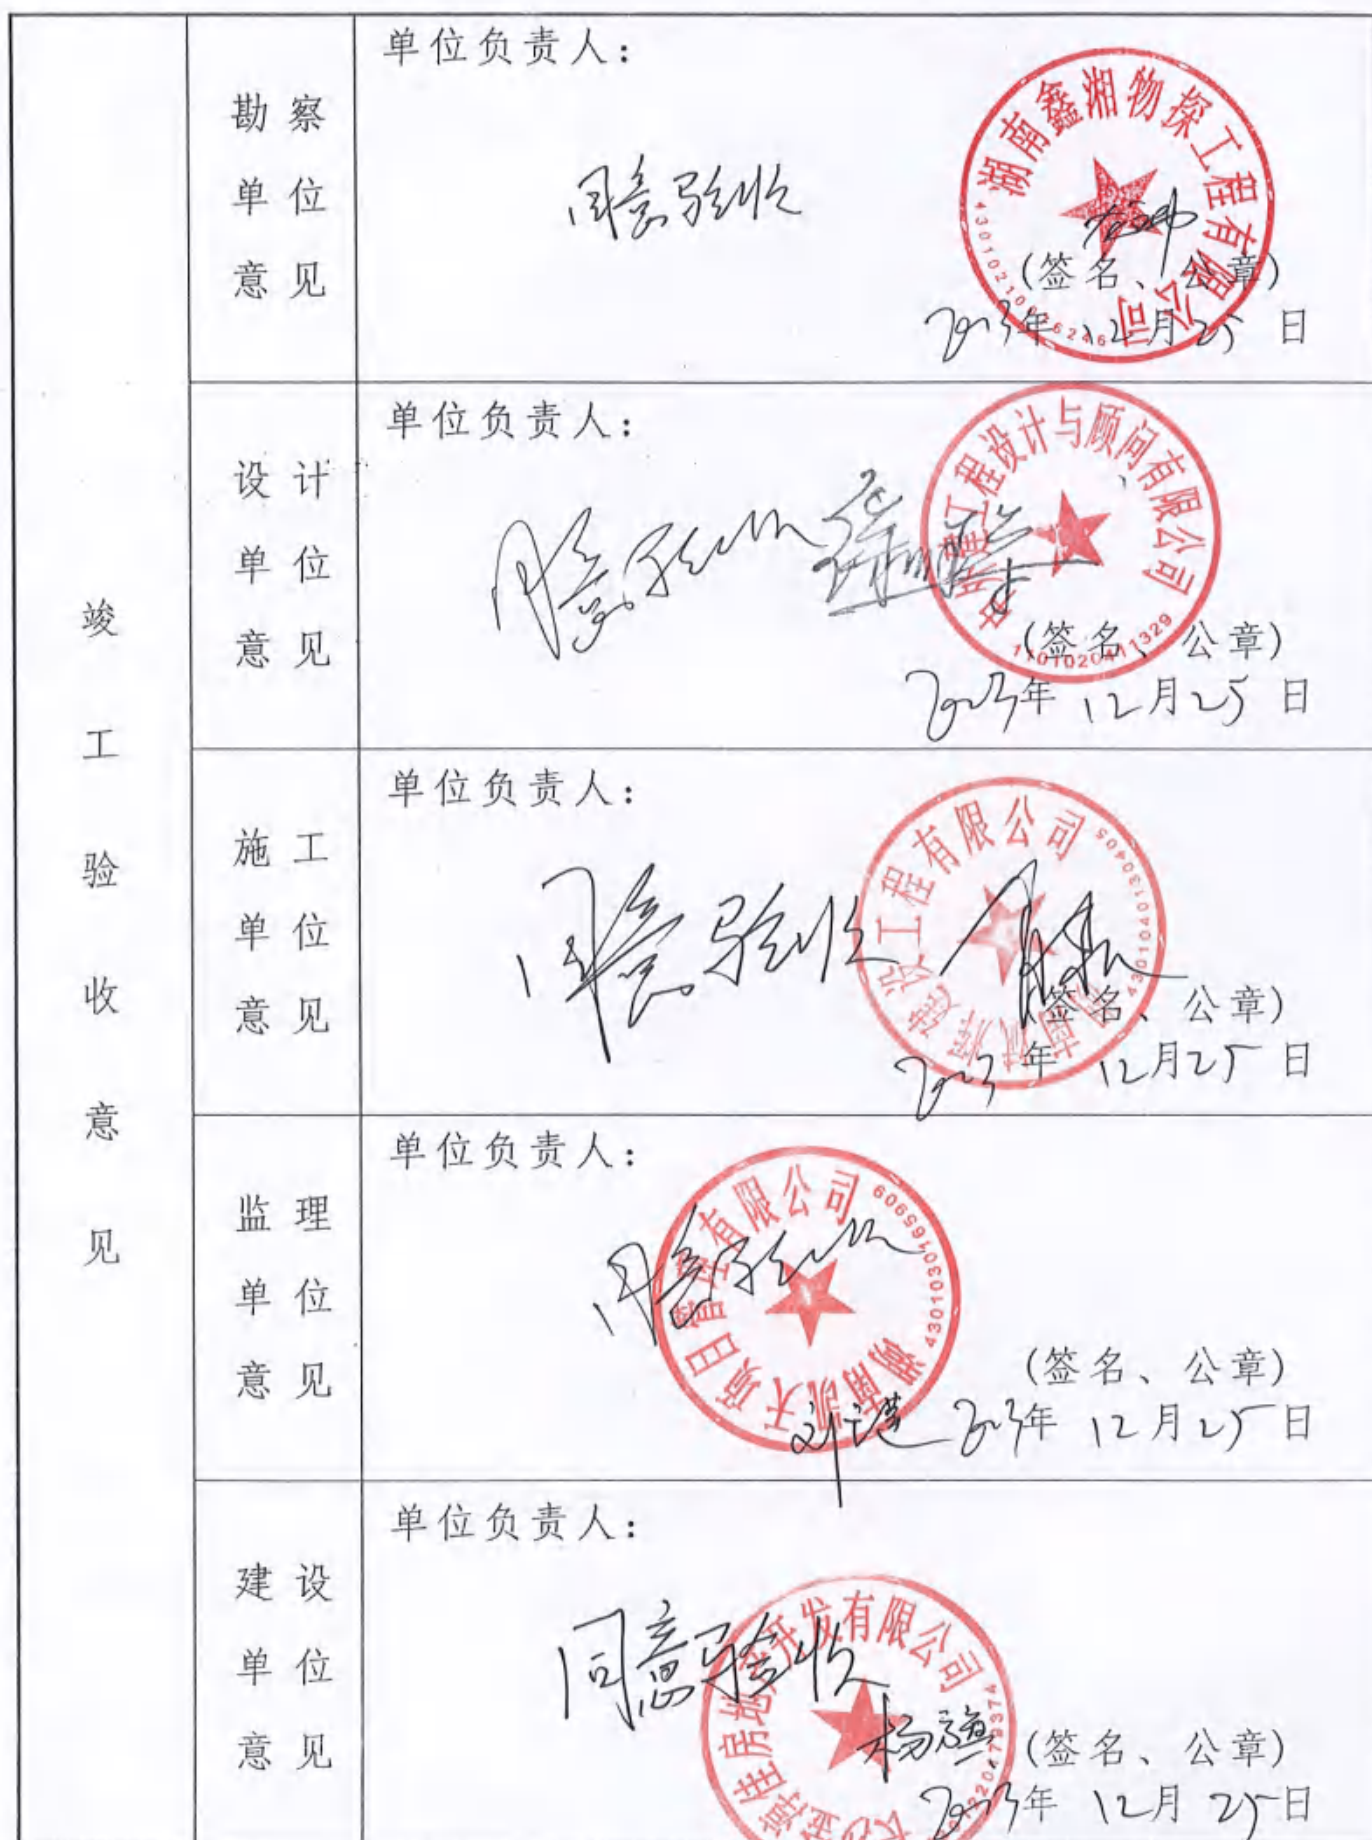 竣工验收意见
勘察单位意见
单位负责人：
同意验收
湖南鑫湘物探工程有限公司
(签名、公章)
2023年12月25日
设计单位意见
单位负责人：
同意验收
工程设计与顾问有限公司
1101020411329
(签名、公章)
2023年12月25日
施工单位意见
单位负责人：
同意验收
建设工程有限公司
4301040130405
(签名、公章)
2023年12月25日
监理单位意见
单位负责人：
同意验收
湖南凯天项目管理有限公司
4301030165909
(签名、公章)
2023年12月25日
建设单位意见
单位负责人：
同意验收
房地产开发有限公司
(签名、公章)
2023年12月25日